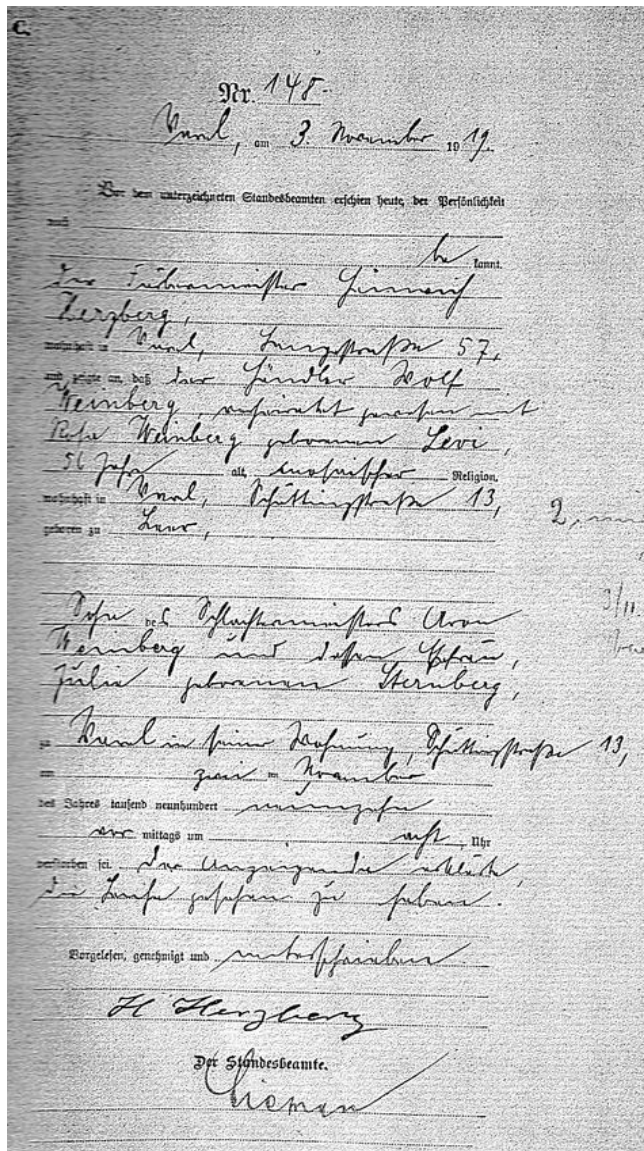 C.
Nr. 148.
Varel, am 3. November 1919.
Vor dem unterzeichneten Standesbeamten erschien heute, der Persönlichkeit
nach
be kannt,
der Färbermeister Hinrich
Herzberg,
wohnhaft in Varel, Langestraße 57,
und zeigte an, daß der Händler Wolf
Weinberg, verheiratet gewesen mit
Rosa Weinberg geborenen Levi,
56 Jahre alt, mosaischer Religion,
wohnhaft in Varel, Schüttingstraße 13,
geboren zu Leer,
2,
3/11.
Sohn des Schlachtermeisters Aron
Weinberg und dessen Ehefrau,
Julie geborenen Sternberg,
zu Varel in seiner Wohnung, Schüttingstraße 13,
am zwei ten November
des Jahres tausend neunhundert neunzehn
vor mittags um acht Uhr
verstorben sei. Der Anzeigende erklärte,
die Leiche gesehen zu haben.
Vorgelesen, genehmigt und unterschrieben
H Herzberg
Der Standesbeamte.